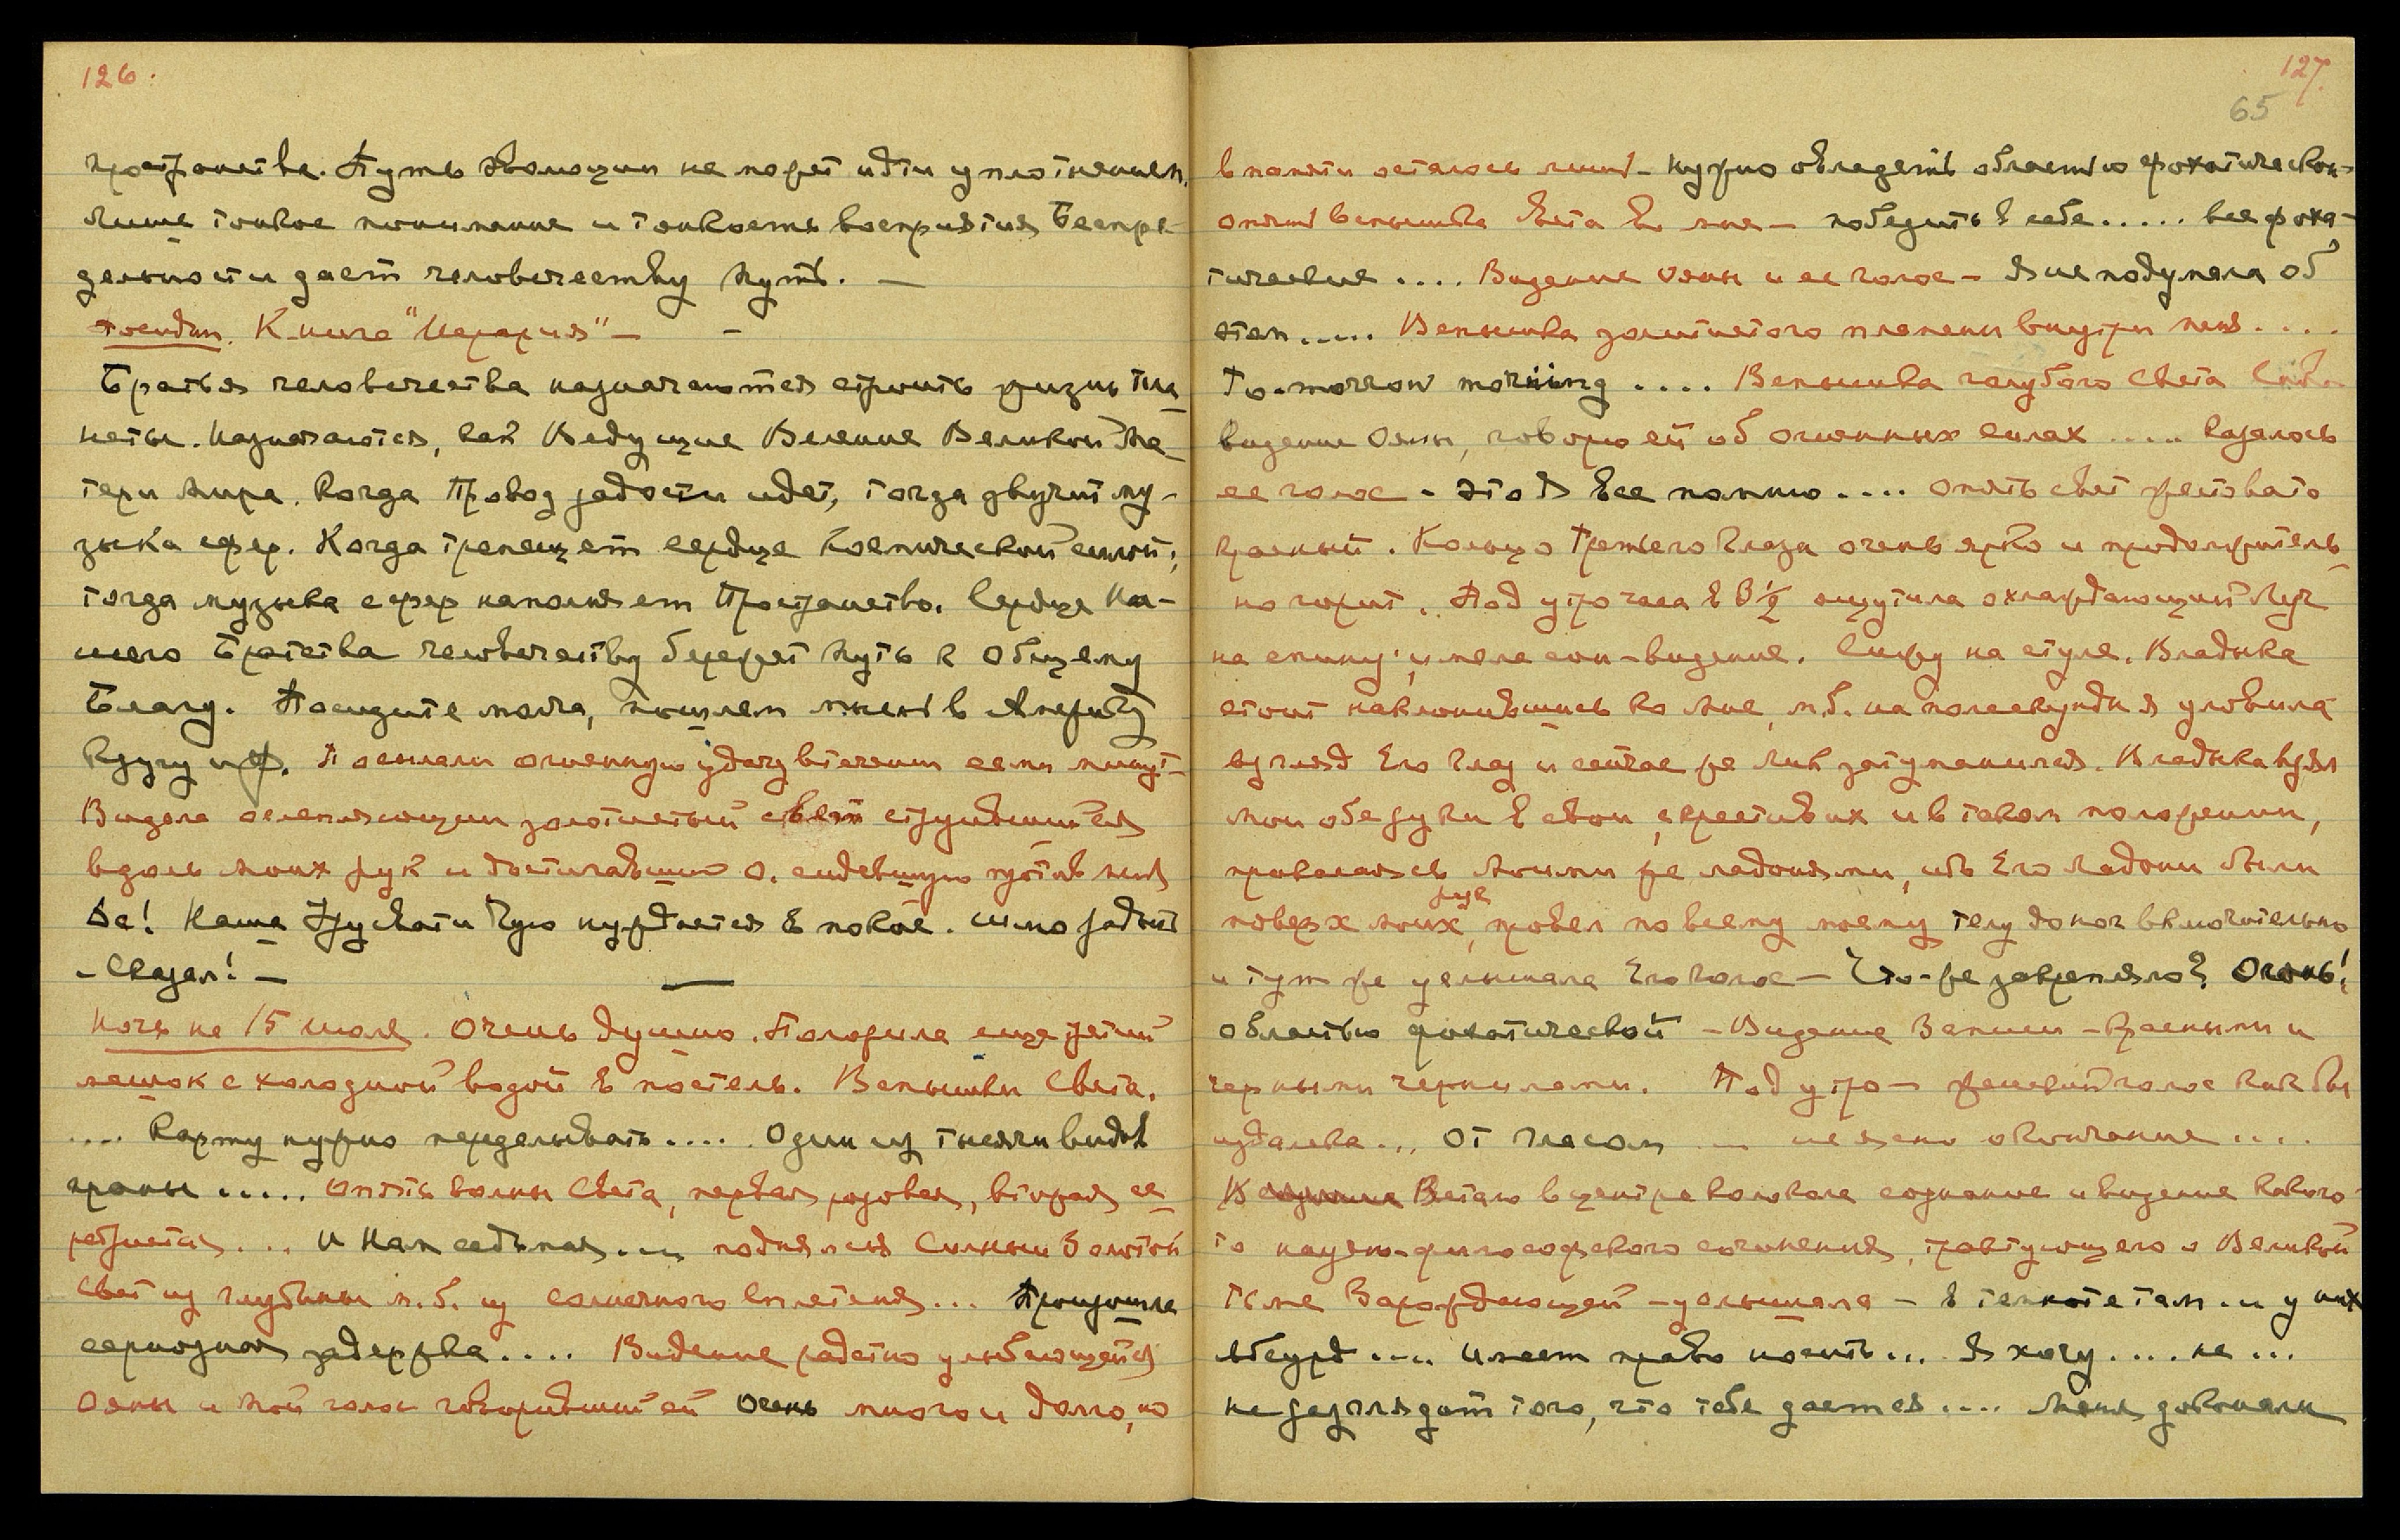 126.
пространства. Путь эволюции не может идти уплотнением.
Лишь тонкое понимание и тонкость восприятия Беспре-
дельности дает человечеству Путь. —
Книга "Иерархия" — –
Братья человечества назначаются строить жизнь пла-
неты. Назначаются, как Ведущие Веления Великой Ма-
тери Мира. Когда Провод радости идет, тогда звучит му-
зыка сфер. Когда трепещет сердце космической силой,
тогда музыка сфер наполняет Пространство. Сердце На-
шего Братства человечеству бережет Путь к Общему
Благу. Посидите молча, пошлем в Америку
Посылали огненную удачу в течении семи минут –
Видела ослепляющий золотистый свет струившийся
вдоль моих рук и достигавший О. сидевшую против меня
Да! Наша Урусвати Чую нуждается в покое. шлю радость
– Сказал! — —
Ночь на 15 июля. Очень душно. Положила еще третий
мешок с холодной водой в постель. Вспышки Света.
.... Карту нужно переделывать.... Один из тысячи видов
праны ..... опять волны Света, первая розовая, вторая се-
ребристая ... И Нам седьмая.... поднялся Сильный Золотой
Свет из глубины м.б. из солнечного сплетения ... Произошла
серьозная задержка .... Видение радостно улыбающейся
Ояны и мой голос говоривший ей очень много и долго, но
127.
65
в памяти осталось лишь – нужно овладеть областью фохатической –
опять вспышка Света во мне – победить в себе ..... все фоха-
тические .... Видение Ояны и ее голос – Я не подумала об
этом ..... Вспышка золотистого пламени внутри меня ....
To-morrow morning .... Вспышка голубого Света
видение Ояны, говорю ей об огненных силах ..... Казалось
ее голос – Это я все помню .... опять свет желтовато
красный. Кольцо Третьего Глаза очень ярко и продолжитель-
но горит. Под утро часа в 3½ ощутила охлаждающий Луч
на спину, имела сон-видение. Сижу на стуле. Владыка
стоит наклонившись ко мне, м.б. на полсекунды я уловила
взгляд Его Глаз и сейчас же Лик затуманился. Владыка взял
мои обе руки в свои, скрестив их и в таком положении,
прикасаясь моими же ладонями, ибо Его Ладони были
поверх моих рук, провел по всему моему телу до ног включительно
и тут же услышала Его Голос — Что-же закрепляло? Огонь!
областью фохатической – Видение Записи – красными и
черными чернилами. Под утро – женский голос как бы
издалека ... От Гласом ... не ясно окончание ....
Встаю в центре колокола сознание и видение какого-
то научно-философского сочинения, трактующего о Великой
Тьме Зарождающей – услышала – в темноте там. и у них
абсурд .... Имеет право носить ... Я хочу .... не ...
не разглядит того, что тебе дается .... Меня доконали